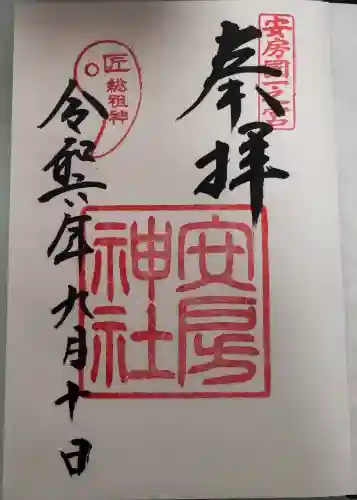 安房國一之宮
奉拝
安房神社
匠総祖神
令和六年九月十日